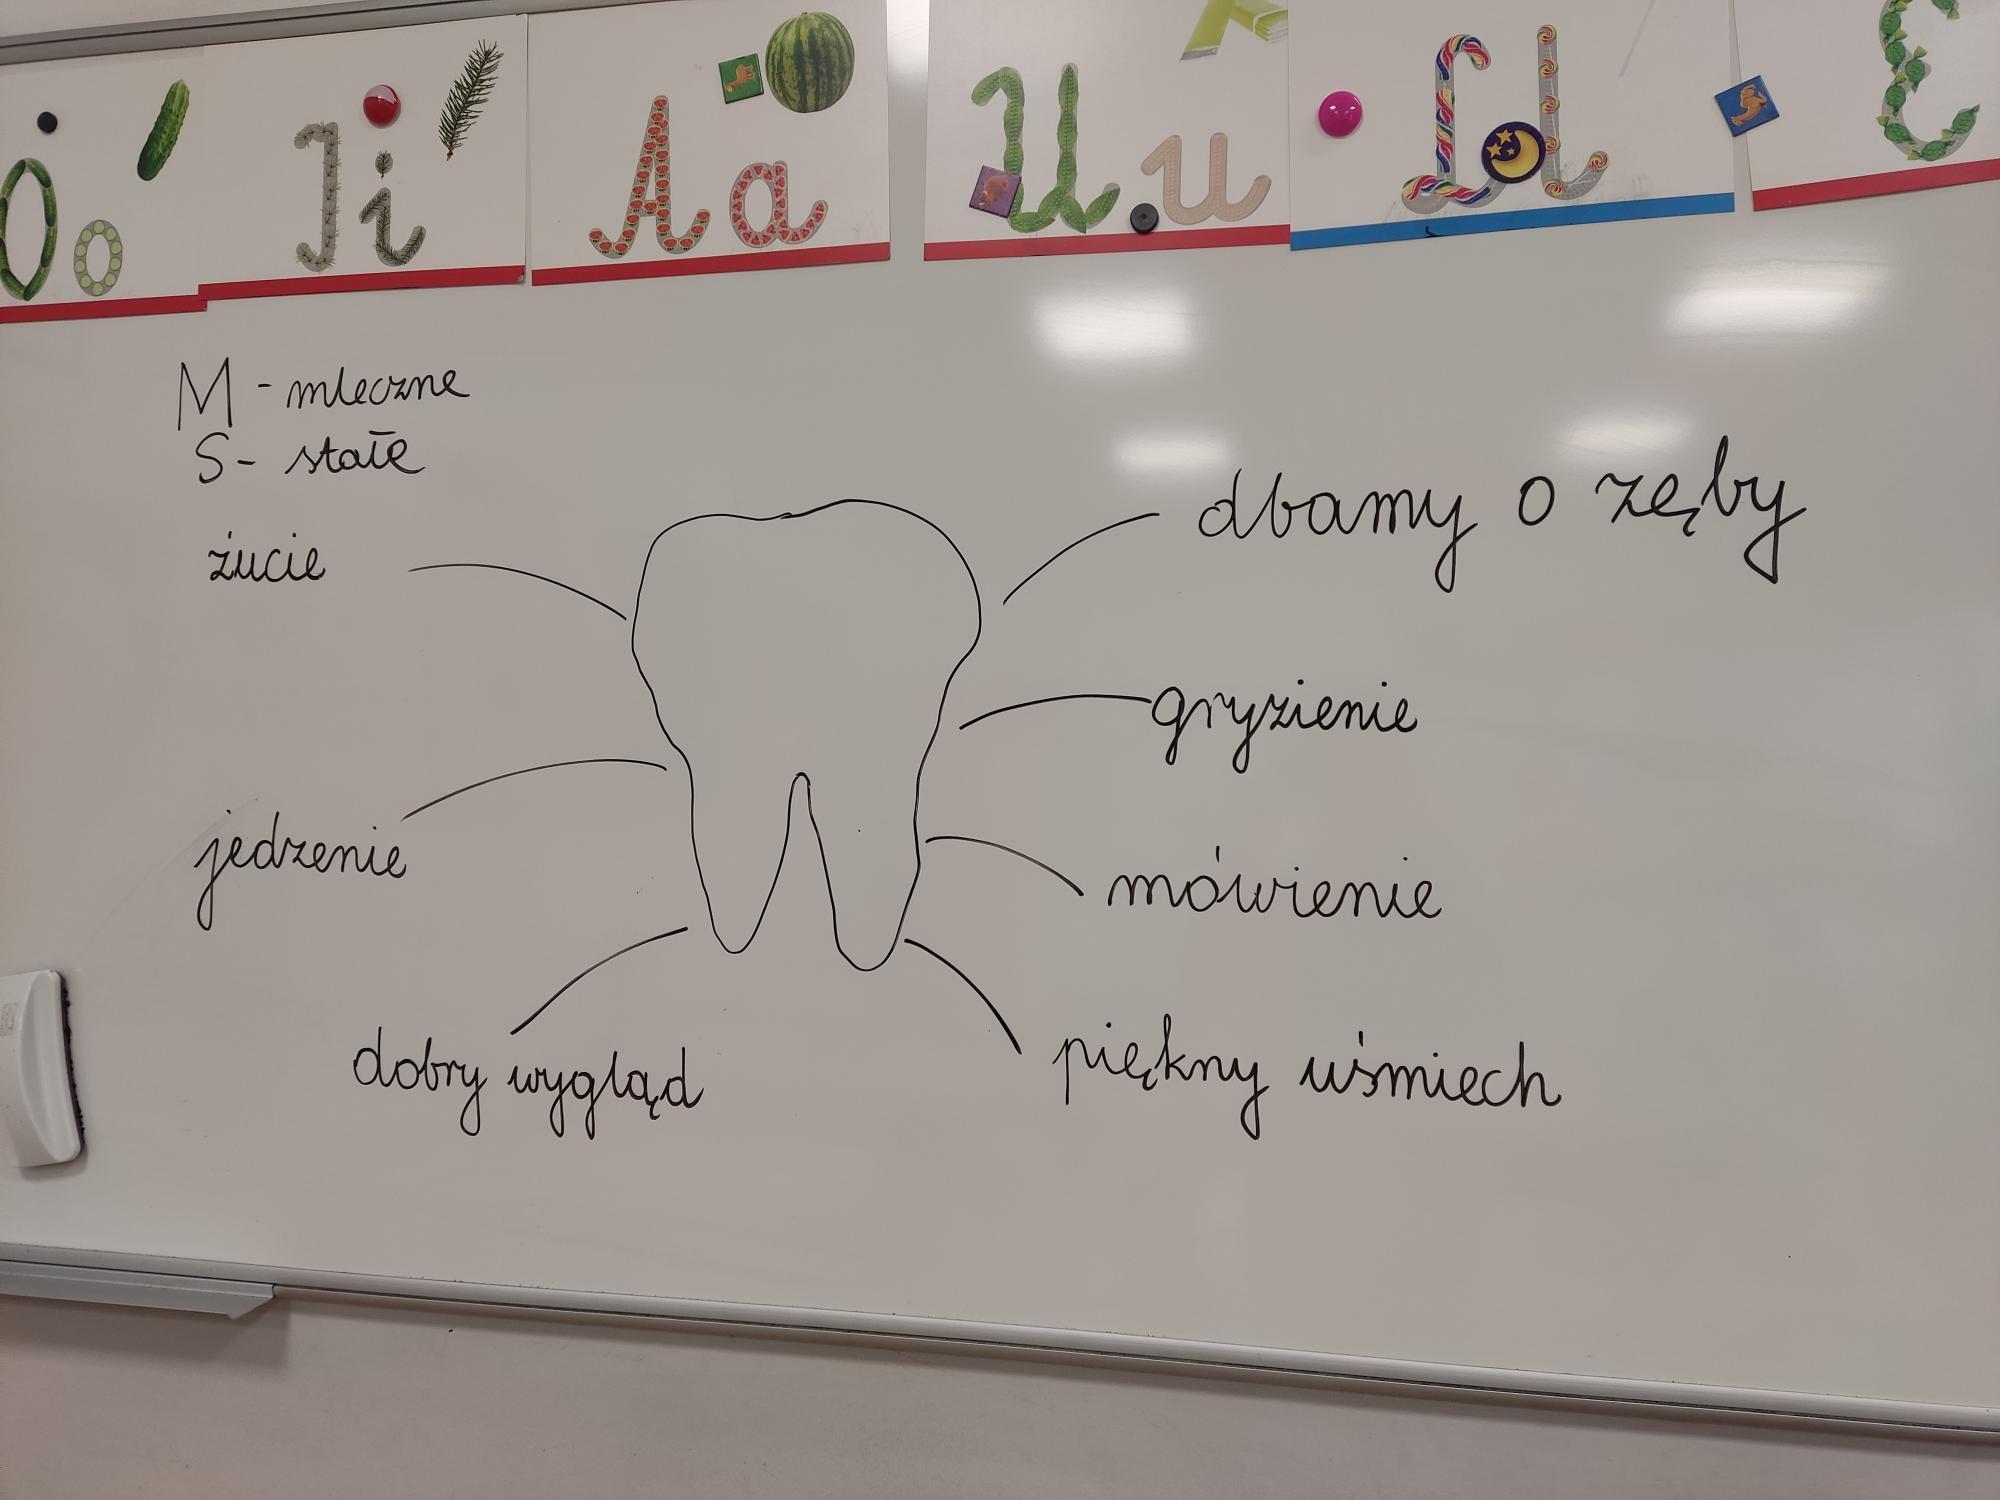 O o
I i
A a
U u
L l
E
M - mleczne
S - stałe
żucie
dbamy o zęby
gryzienie
jedzenie
mówienie
dobry wygląd
piękny uśmiech